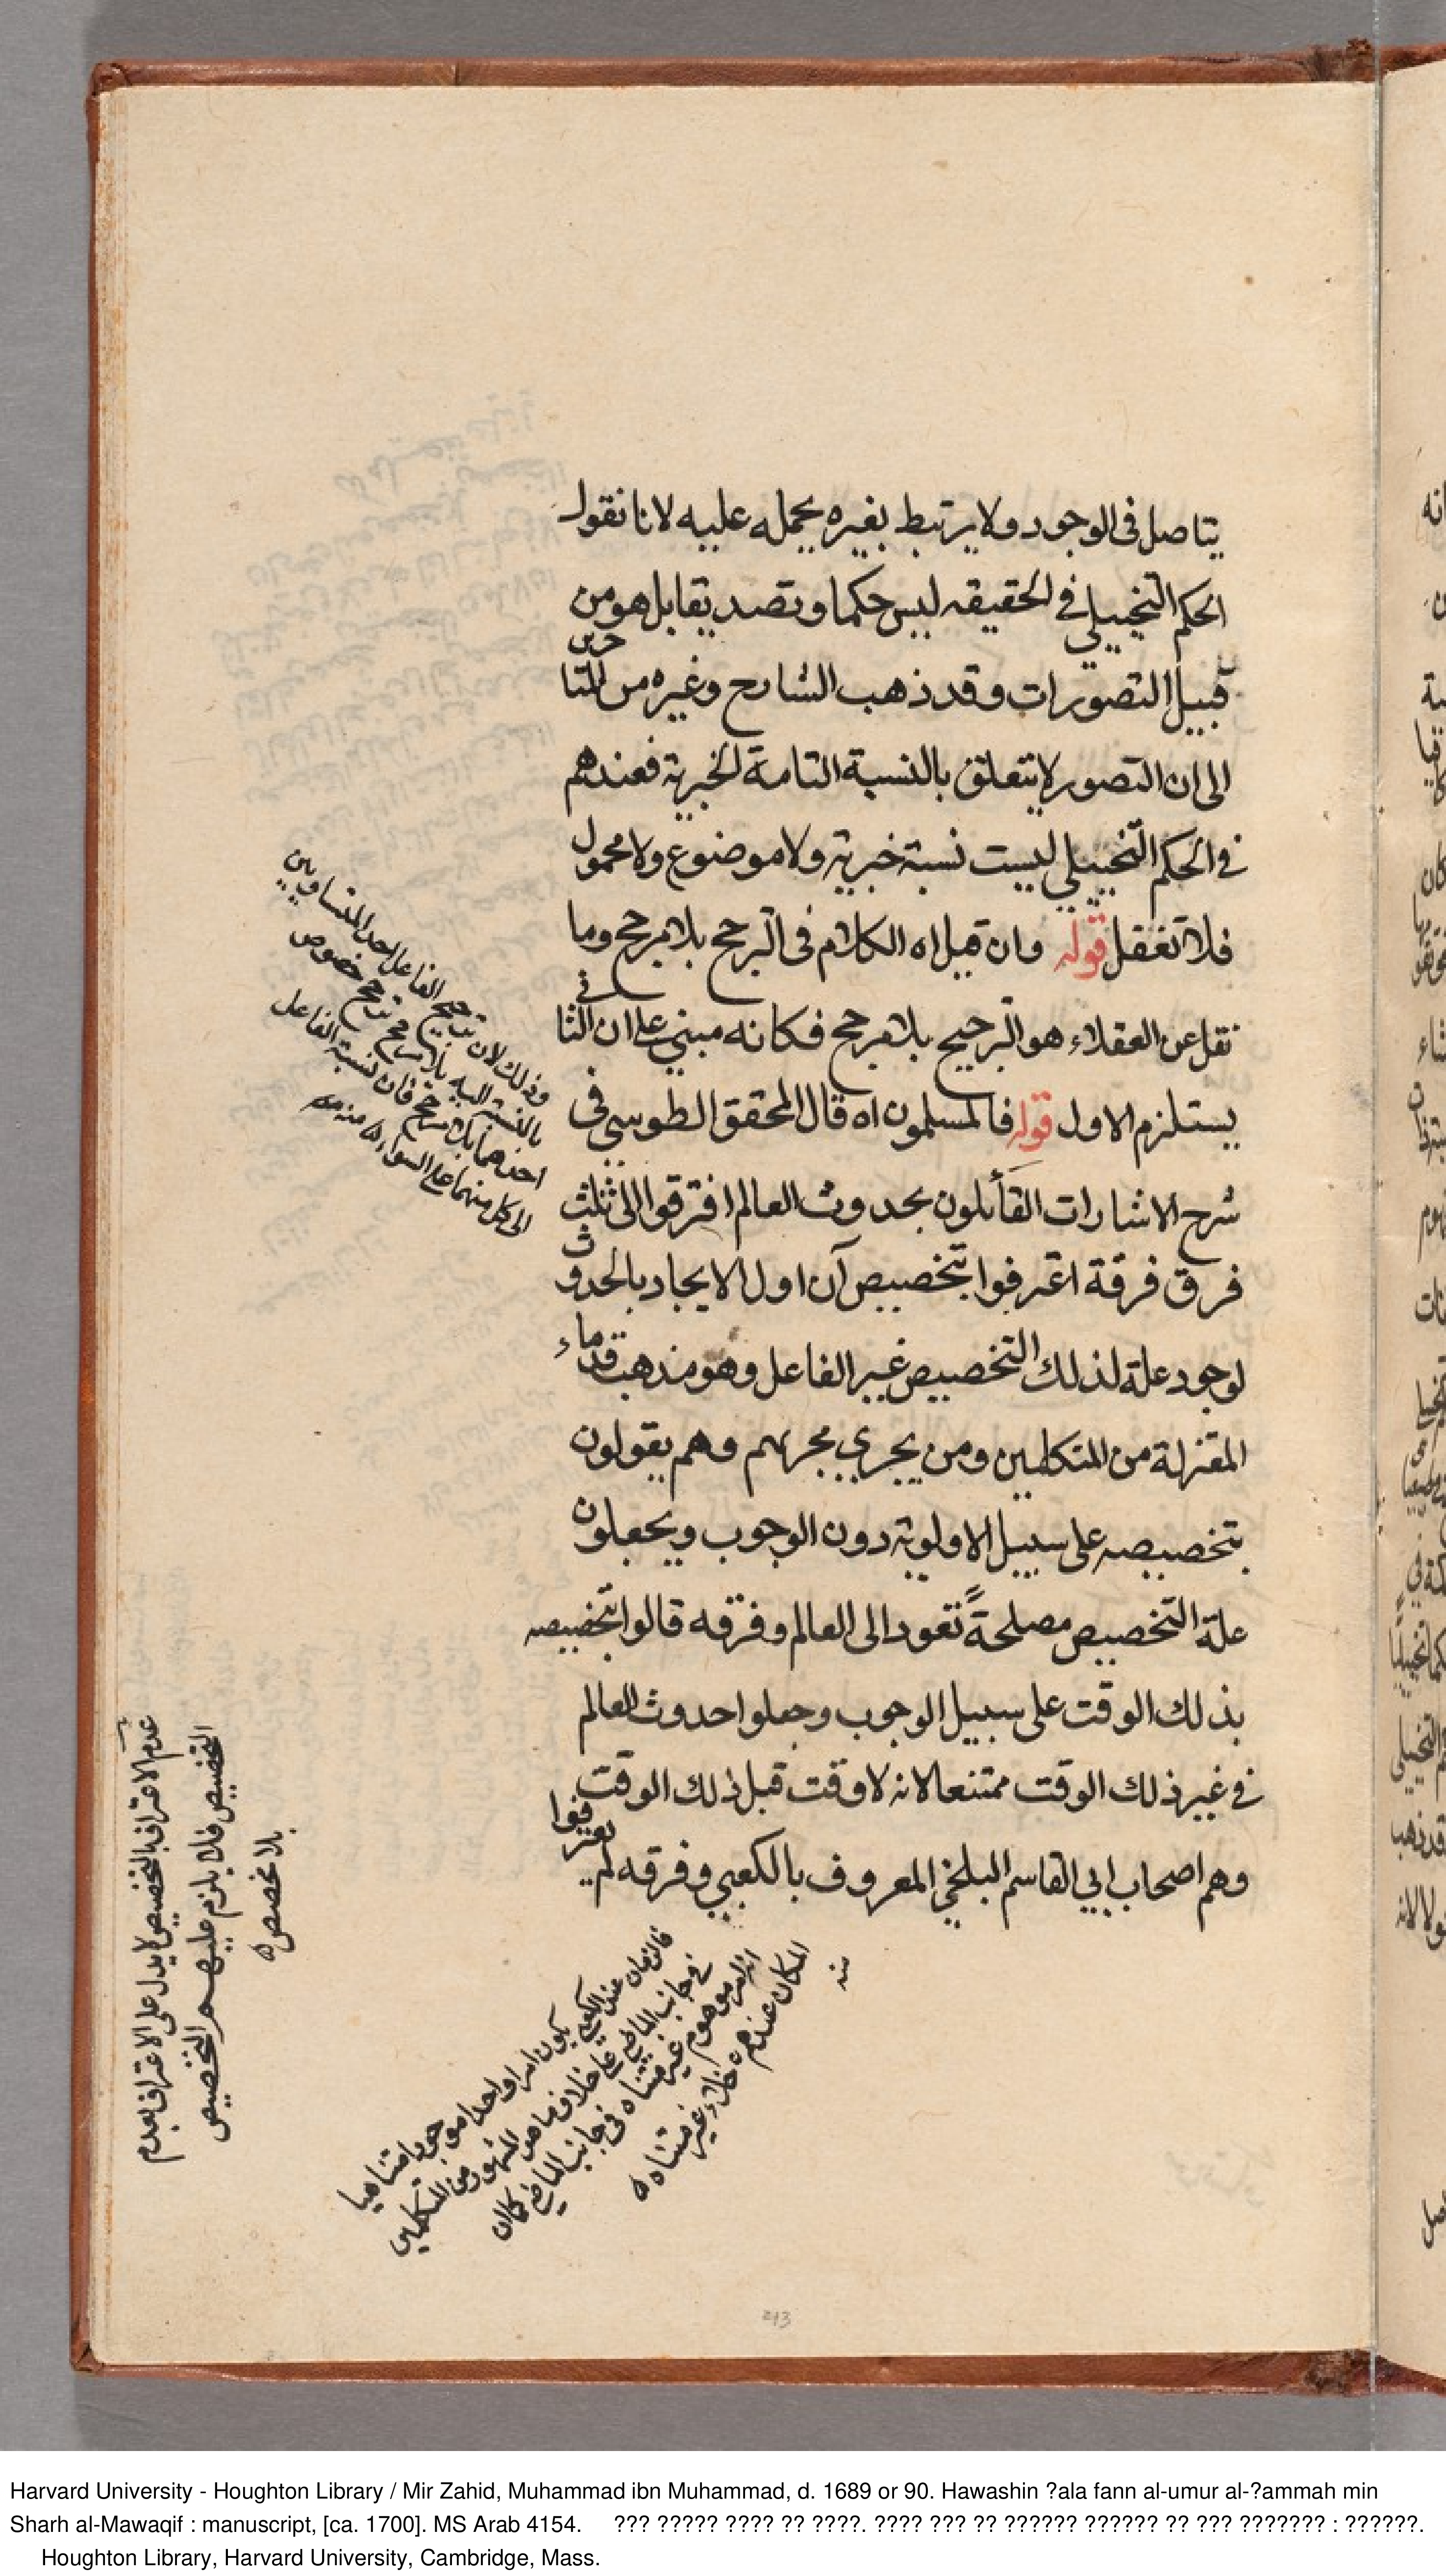 يتاصل فى الوجود ولا يرتبط بغيره بحمله عليه لانا نقول
الحكم التخييلي في الحقيقه ليس حكما وتصديقا بل هو من
قبيل التصورات وقد ذهب الشارح وغيره من المتاخرين
الى ان التصور لا يتعلق بالنسبة التامة الخبرية فعندهم
في الحكم التخييلي ليست نسبة خبرية ولا موضوع ولا محمول
فلا تغفل قوله وان قيل اه الكلام فى الترجح بلا مرجح وما
نقل عن العقلاء هو الترجيح بلا مرجح فكانه مبني على ان الثانى
يستلزم الاول قوله فالمسلمون اه قال المحقق الطوسي فى
شرح الاشارات القائلون بحدوث العالم افترقوا الى ثلث
فرق فرقة اعترفوا بتخصيص آن اول الايجاد بالحدوث
لوجود علة لذلك التخصيص غير الفاعل وهو مذهب قدماء
المعتزلة من المتكلمين ومن يجري مجريهم وهم يقولون
بتخصيصه على سبيل الاولوية دون الوجوب ويجعلون
علة التخصيص مصلحةً تعود الى العالم وفرقه قالوا بتخصيصه
بذلك الوقت على سبيل الوجوب وجعلوا حدوث العالم
في غير ذلك الوقت ممتنعا لانه لا وقت قبل ذلك الوقت
وهم اصحاب ابي القاسم البلخي المعروف بالكعبي وفرقه لم يعترفوا
وذلك لان ترجيح الفاعل احد المتساويين
بالنسبة اليه بلا مرجح ترجح خصوص
احدهما بلا مرجح فان نسبة الفاعل
الى كل منهما على السواء ه منه
عدم الاعتراف بالتخصيص لا يدل على الاعتراف بعدم
التخصيص فلا يلزم عليهم التخصيص
بلا مخصص ه
فالزمان عند الكعبي يكون امرا واحدا موجودا متناهيا
في جانب الماضي على خلاف ما هو المشهور من المتكلمين
انه امر موهوم غير متناه فى جانب الماضي كما ان
المكان عندهم خلاء غير متناه ه
منه
213
Harvard University - Houghton Library / Mir Zahid, Muhammad ibn Muhammad, d. 1689 or 90. Hawashin ?ala fann al-umur al-?ammah min
Sharh al-Mawaqif : manuscript, [ca. 1700]. MS Arab 4154. ??? ????? ???? ?? ????. ???? ??? ?? ?????? ?????? ?? ??? ??????? : ??????.
Houghton Library, Harvard University, Cambridge, Mass.